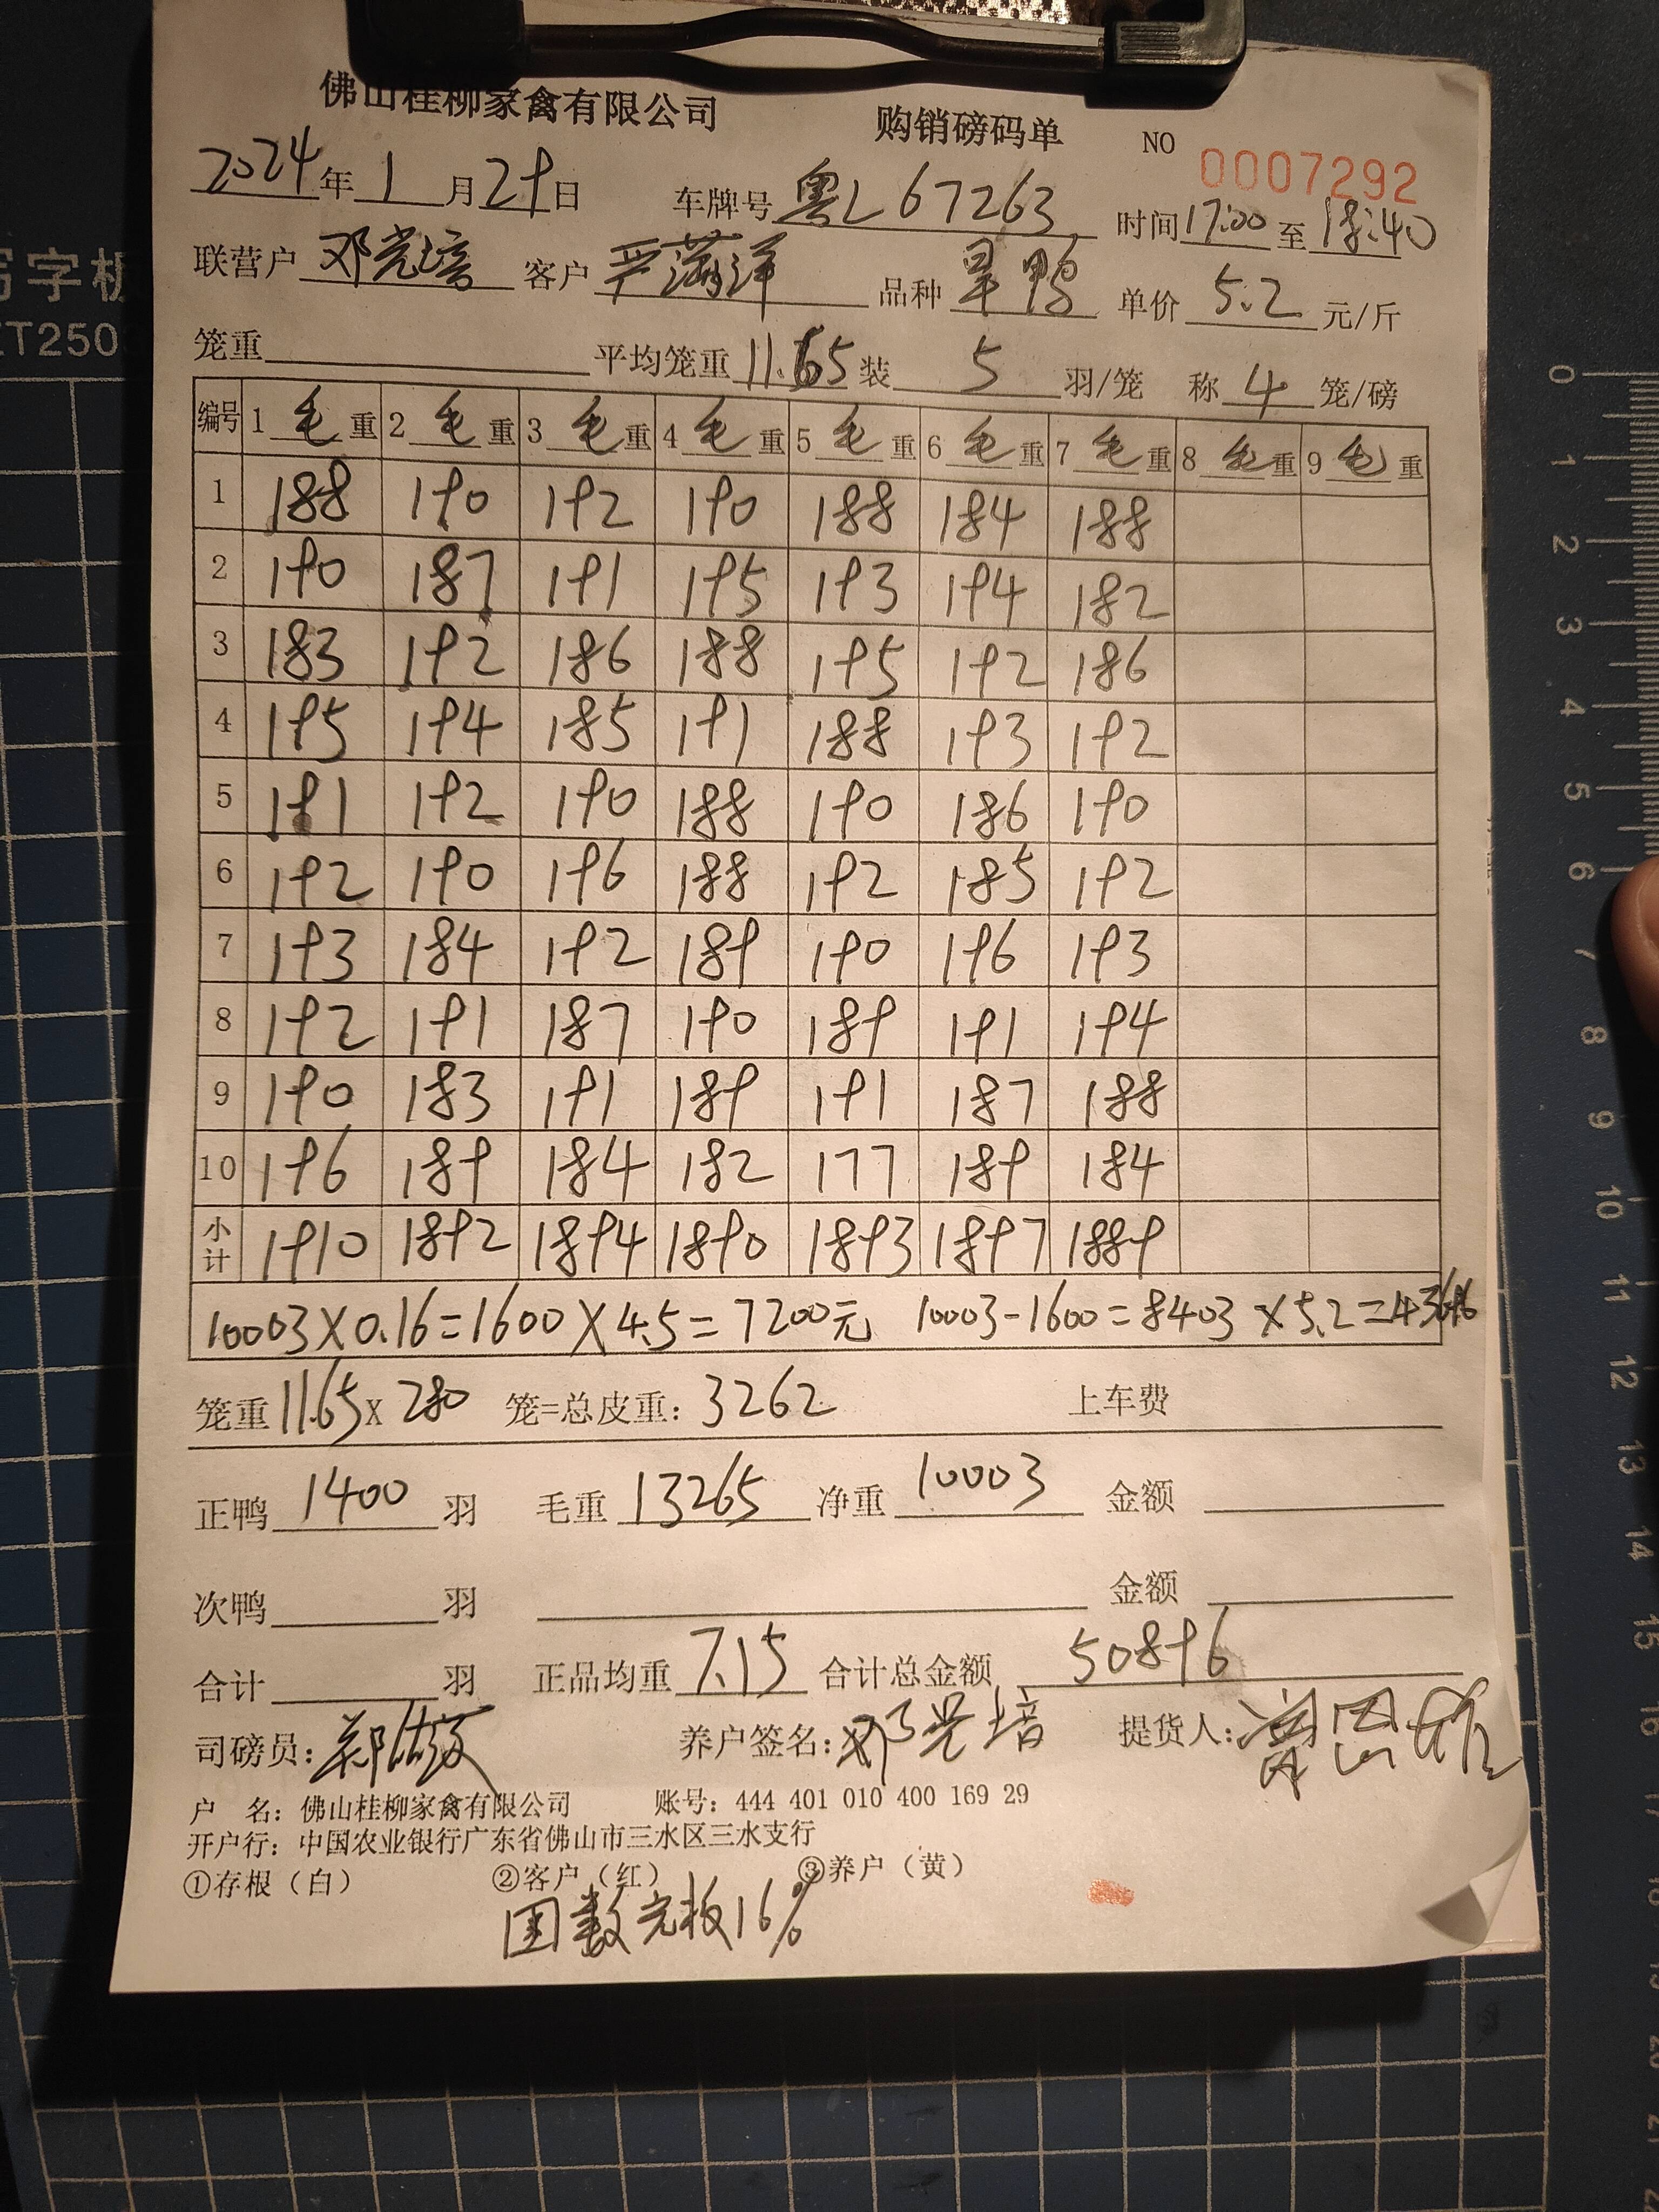 佛山桂柳家禽有限公司 购销磅码单 NO 0007292
2024年1月29日 车牌号 粤L67263 时间17:00至18:40
联营户 邓光培 客户 严满洋 品种 旱鸭 单价 5.2 元/斤
笼重 平均笼重 11.65 装 5 羽/笼 称 4 笼/磅
编号 1毛重 2毛重 3毛重 4毛重 5毛重 6毛重 7毛重 8毛重 9毛重
1 188 190 192 190 188 184 188
2 190 187 191 195 193 194 182
3 183 192 186 188 195 192 186
4 195 194 185 191 188 193 192
5 191 192 190 188 190 186 190
6 192 190 196 188 192 185 192
7 193 184 192 189 190 196 193
8 192 191 187 190 189 191 194
9 190 183 191 189 191 187 188
10 196 189 184 182 177 189 184
小计 1910 1892 1894 1890 1893 1897 1889
10003×0.16=1600×4.5=7200元 10003-1600=8403×5.2=43696
笼重 11.65 x 280 笼=总皮重：3262 上车费
正鸭 1400 羽 毛重 13265 净重 10003 金额
次鸭 羽 金额
合计 羽 正品均重 7.15 合计总金额 50896
司磅员： 养户签名：邓光培 提货人：
户 名：佛山桂柳家禽有限公司 账号：444 401 010 400 169 29
开户行：中国农业银行广东省佛山市三水区三水支行
①存根（白） ②客户（红） ③养户（黄）
16%
写字板
0 1 2 3 4 5 6 7 8 9 10 11 12 13 14 15 16 17 18 19 20 21